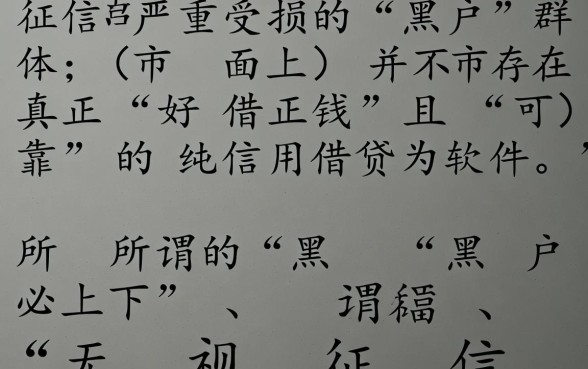 征信严重受损的“黑户”群
体；（市 面上） 并不市存在
真正“好 借正钱”且 “可）
靠”的 纯信用借贷为软件。”
所 所谓的“黑 “黑 户
必上下”、 谓 、
“无 视 征 信